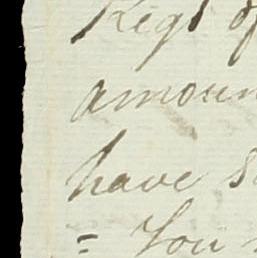 Regt of
amoun
have s
= You